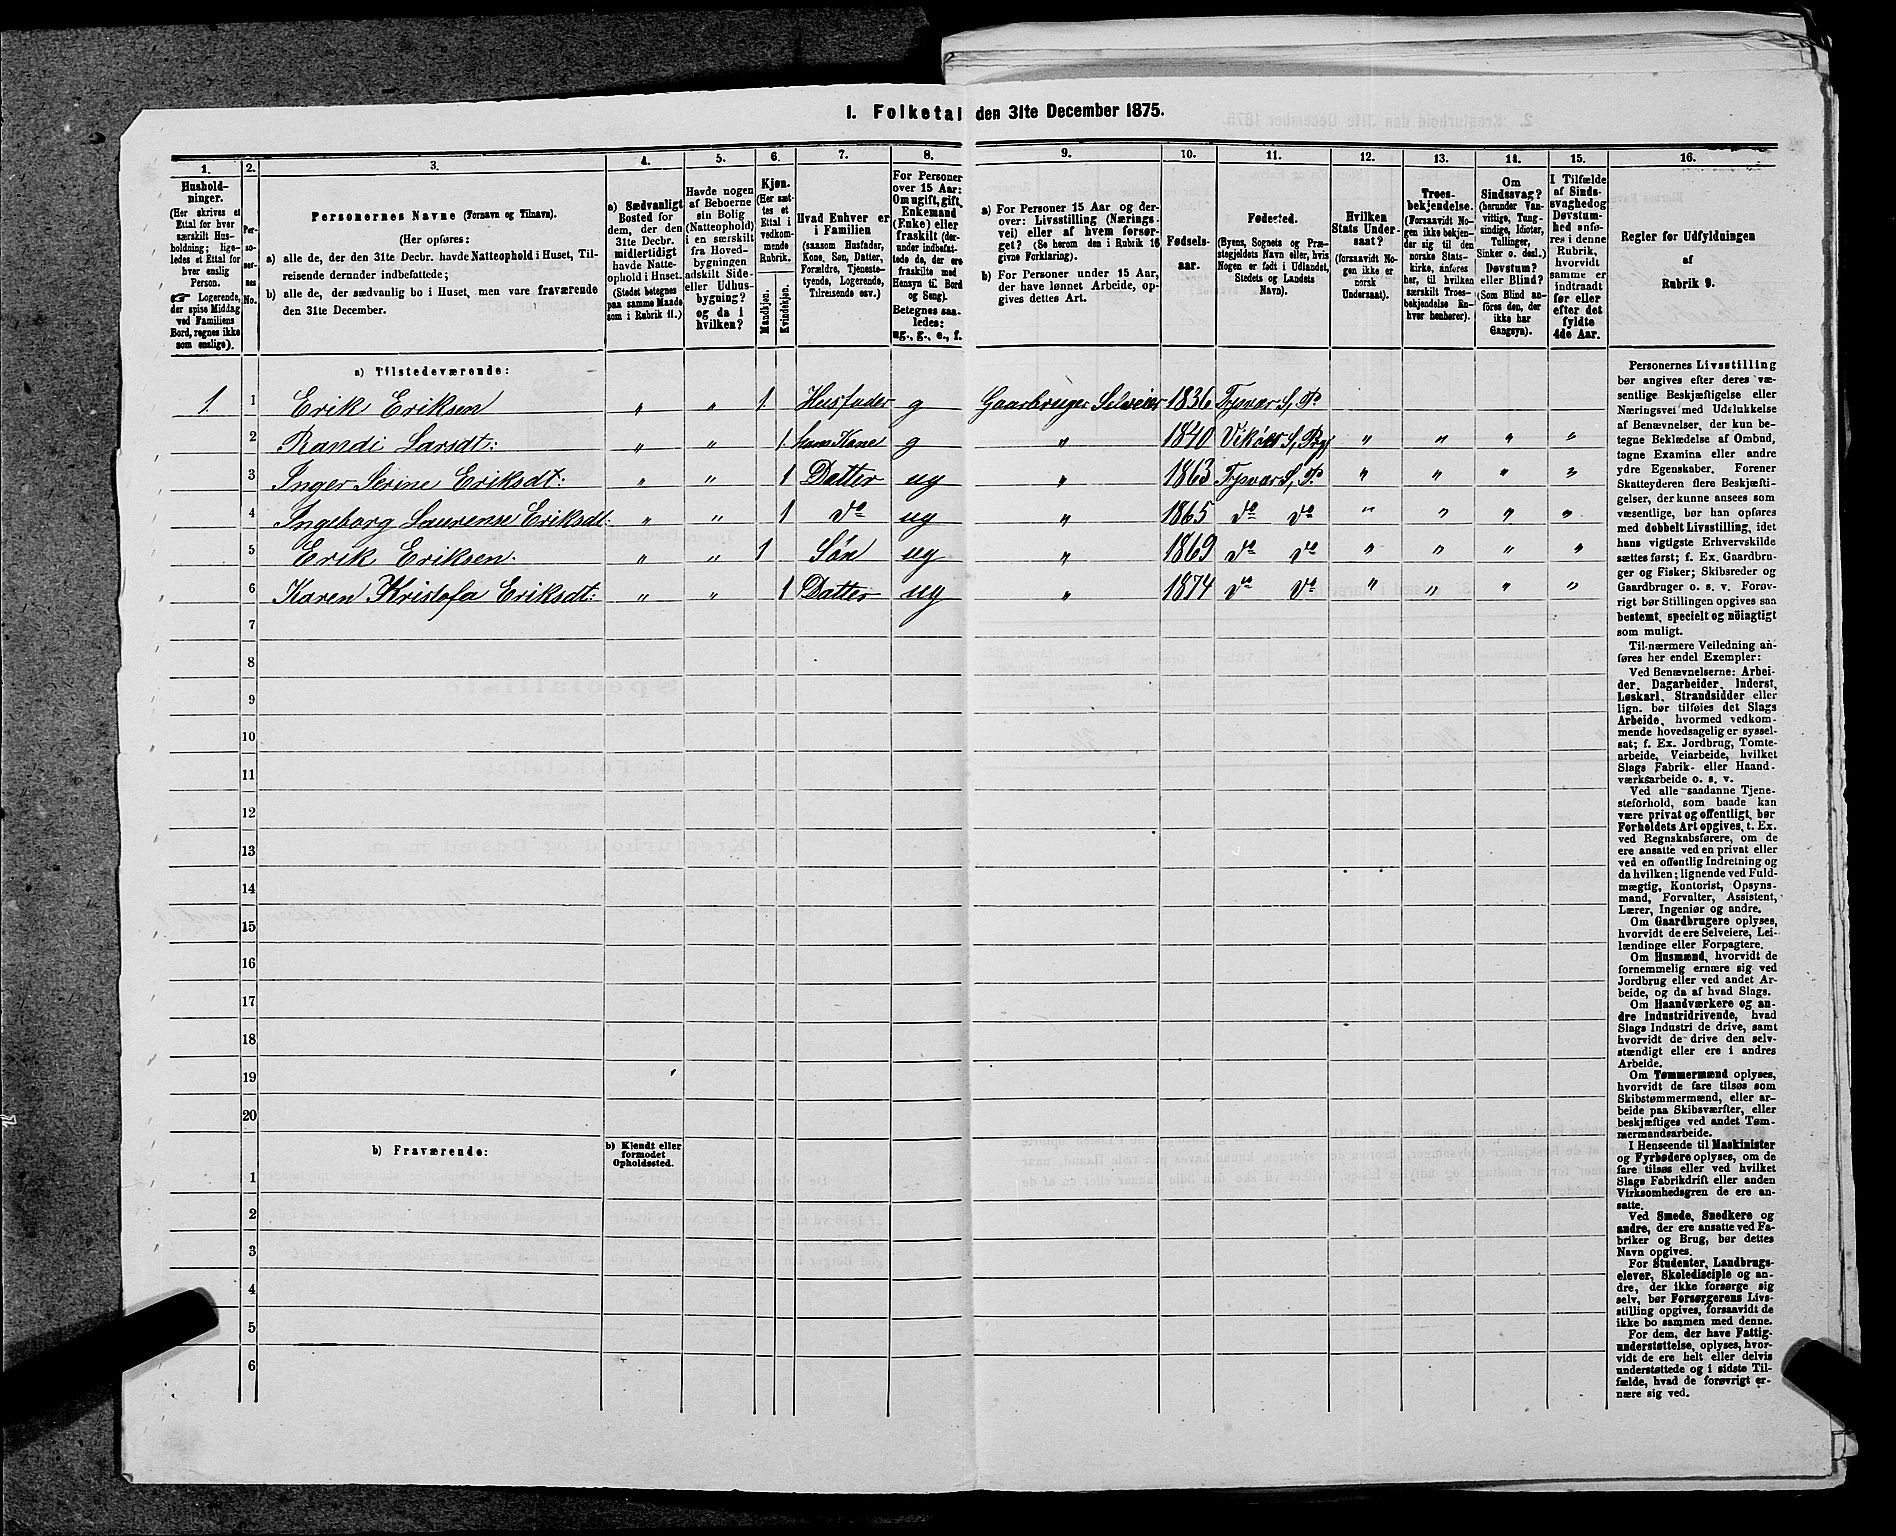 1. Folketal den 31te December 1875.
1. 2. 3. 4. 5. 6. 7. 8. 9. 10. 11. 12. 13. 14. 15. 16.
Hushold-
ninger.
(Her skrives et
Ettal for hver
særskilt Hus-
holdning; lige-
ledes et Ettal for
hver enslig
Person.
☞ Logerende,
der spise Middag
ved Familiens
Bord, regnes ikke
som enslige).
Per-
so-
ner-
nes
No.
Personernes Navne (Fornavn og Tilnavn).
(Her opføres:
a) alle de, der den 31te Decbr. havde Natteophold i Huset, Til-
reisende derunder indbefattede;
b) alle de, der sædvanlig bo i Huset, men vare fraværende
den 31te December.
a) Sædvanligt
Bosted for
dem, der den
31te Decbr.
midlertidigt
havde Natte-
ophold i Huset.
(Stedet betegnes
paa samme Maade
som i Rubrik 11.)
Havde nogen
af Beboerne
sin Bolig
(Natteophold)
i en særskilt
fra Hoved-
bygningen
adskilt Side-
eller Udhus-
bygning?
og da i
hvilken?
Kjøn.
(Her sæt-
tes et
Ettal i
vedkom-
mende
Rubrik.)
Mandkjøn.
Kvindekjøn.
Hvad Enhver er
i Familien
(saasom Husfader,
Kone, Søn, Datter,
Forældre, Tjeneste-
tyende, Logerende,
Tilreisende osv.)
For Personer
over 15 Aar:
Om ugift, gift,
Enkemand
(Enke) eller
fraskilt (der-
under indbefat-
tede de, der ere
fraskilte med
Hensyn til Bord
og Seng).
Betegnes saa-
ledes:
ug., g., e., f.
a) For Personer 15 Aar og der-
over: Livsstilling (Nærings-
vei) eller af hvem forsør-
get? (Se herom den i Rubrik 16
givne Forklaring).
b) For Personer under 15 Aar,
der have lønnet Arbeide, op-
gives dettes Art.
Fødsels-
aar.
Fødested.
(Byens, Sognets og Præ-
stegjeldets Navn eller, hvis
Nogen er født i Udlandet,
Stedets og Landets
Navn).
Hvilken
Stats Under-
saat?
(forsaavidt No-
gen ikke er
norsk
Undersaat).
Troes-
bekjendelse.
(Forsaavidt No-
gen ikke bekjen-
der sig til den
norske Stats-
kirke, anføres
her, til hvilken
særskilt Troes-
bekjendelse En-
hver henhører).
Om
Sindssvag?
(herunder Van-
vittige, Tung-
sindige, Idioter,
Tullinger,
Sinker o. desl.)
Døvstum?
eller Blind?
(Som Blind an-
føres den, der
ikke har
Gangsyn).
I Tilfælde
af Sinds-
svaghed og
Døvstum-
hed anfø-
res i denne
Rubrik,
hvorvidt
samme er
indtraadt
før eller
efter det
fyldte
4de Aar.
Regler for Udfyldningen
af
Rubrik 9.
a) Tilstedeværende:
1. 1 Erik Eriksen „ „ 1 Husfader g Gaarbruger Selveier 1836 Tysvær S, P.
2 Randi Larsdt: „ „ 1 hans Kone g „ 1840 Vikørs S, Prg „ „ „ „
3 Inger Serine Eriksdt: „ „ 1 Datter ug „ 1863 Tysvær S, P. „ „ „ „
4 Ingeborg Laurense Eriksdt: „ „ 1 do ug „ 1865 do do „ „ „ „
5 Erik Eriksen. „ „ 1 Søn ug „ 1869 do do „ „ „ „
6 Karen Kristofa Eriksdt: „ „ 1 Datter ug „ 1874 do do „ „ „ „
7
8
9
10
11
12
13
14
15
16
17
18
19
20
b) Fraværende:
b) Kjendt eller
formodet
Opholdssted.
1
2
3
4
5
6
Personernes Livsstilling
bør angives efter deres væ-
sentlige Beskjæftigelse eller
Næringsvei med Udelukkelse
af Benævnelser, der kun be-
tegne Beklædelse af Ombud,
tagne Examina eller andre
ydre Egenskaber. Forener
Skatteyderen flere Beskjæfti-
gelser, der kunne ansees som
væsentlige, bør han opføres
med dobbelt Livsstilling, idet
hans vigtigste Erhvervskilde
sættes først; f. Ex. Gaardbru-
ger og Fisker; Skibsreder og
Gaardbruger o. s. v. Forøv-
rigt bør Stillingen opgives saa
bestemt, specielt og nöiagtigt
som muligt.
Til nærmere Veiledning an-
føres her endel Exempler:
Ved Benævnelserne: Arbei-
der, Dagarbeider, Inderst,
Løskarl, Strandsidder eller
lign. bør tilføies det Slags
Arbeide, hvormed vedkom-
mende hovedsagelig er syssel-
sat; f. Ex. Jordbrug, Tomte-
arbeide, Veiarbeide, hvilket
Slags Fabrik- eller Haand-
værksarbeide o. s. v.
Ved alle saadanne Tjene-
steforhold, som baade kan
være privat og offentligt, bør
Forholdets Art opgives, t. Ex.
ved Regnskabsførere, om de
ere ansatte ved en privat eller
ved en offentlig Indretning og
da hvilken; lignende ved Fuld-
mægtig, Kontorist, Opsyns-
mand, Forvalter, Assistent,
Lærer, Ingeniør og andre.
Om Gaardbrugere oplyses,
hvorvidt de ere Selveiere, Lei-
lændinge eller Forpagtere.
Om Husmænd, hvorvidt de
fornemmelig ernære sig ved
Jordbrug eller ved andet Ar-
beide, og da af hvad Slags.
Om Haandværkere og an-
dre Industridrivende, hvad
Slags Industri de drive, samt
hvorvidt de drive den selv-
stændigt eller ere i andres
Arbeide.
Om Tømmermænd oplyses,
hvorvidt de fare tilsøs som
Skibstømmermænd, eller ar-
beide paa Skibsværfter, eller
beskjæftiges ved andet Tøm-
mermandsarbeide.
I Henseende til Maskinister
og Fyrbødere oplyses, om de
fare tilsøs eller ved hvilket
Slags Fabrikdrift eller anden
Virksomhedsgren de ere an-
satte.
Ved Smede, Snedkere og
andre, der ere ansatte ved Fa-
briker og Brug, bør dettes
Navn opgives.
For Studenter, Landbrugs-
elever, Skoledisciple og an-
dre, der ikke forsørge sig
selv, bør Forsørgerens Livs-
stilling opgives, forsaavidt de
ikke bo sammen med denne.
For dem, der have Fattig-
understøttelse, oplyses, hvor-
vidt de ere helt eller delvis
understøttede og i sidste Til-
fælde, hvad de forøvrigt er-
nære sig ved.